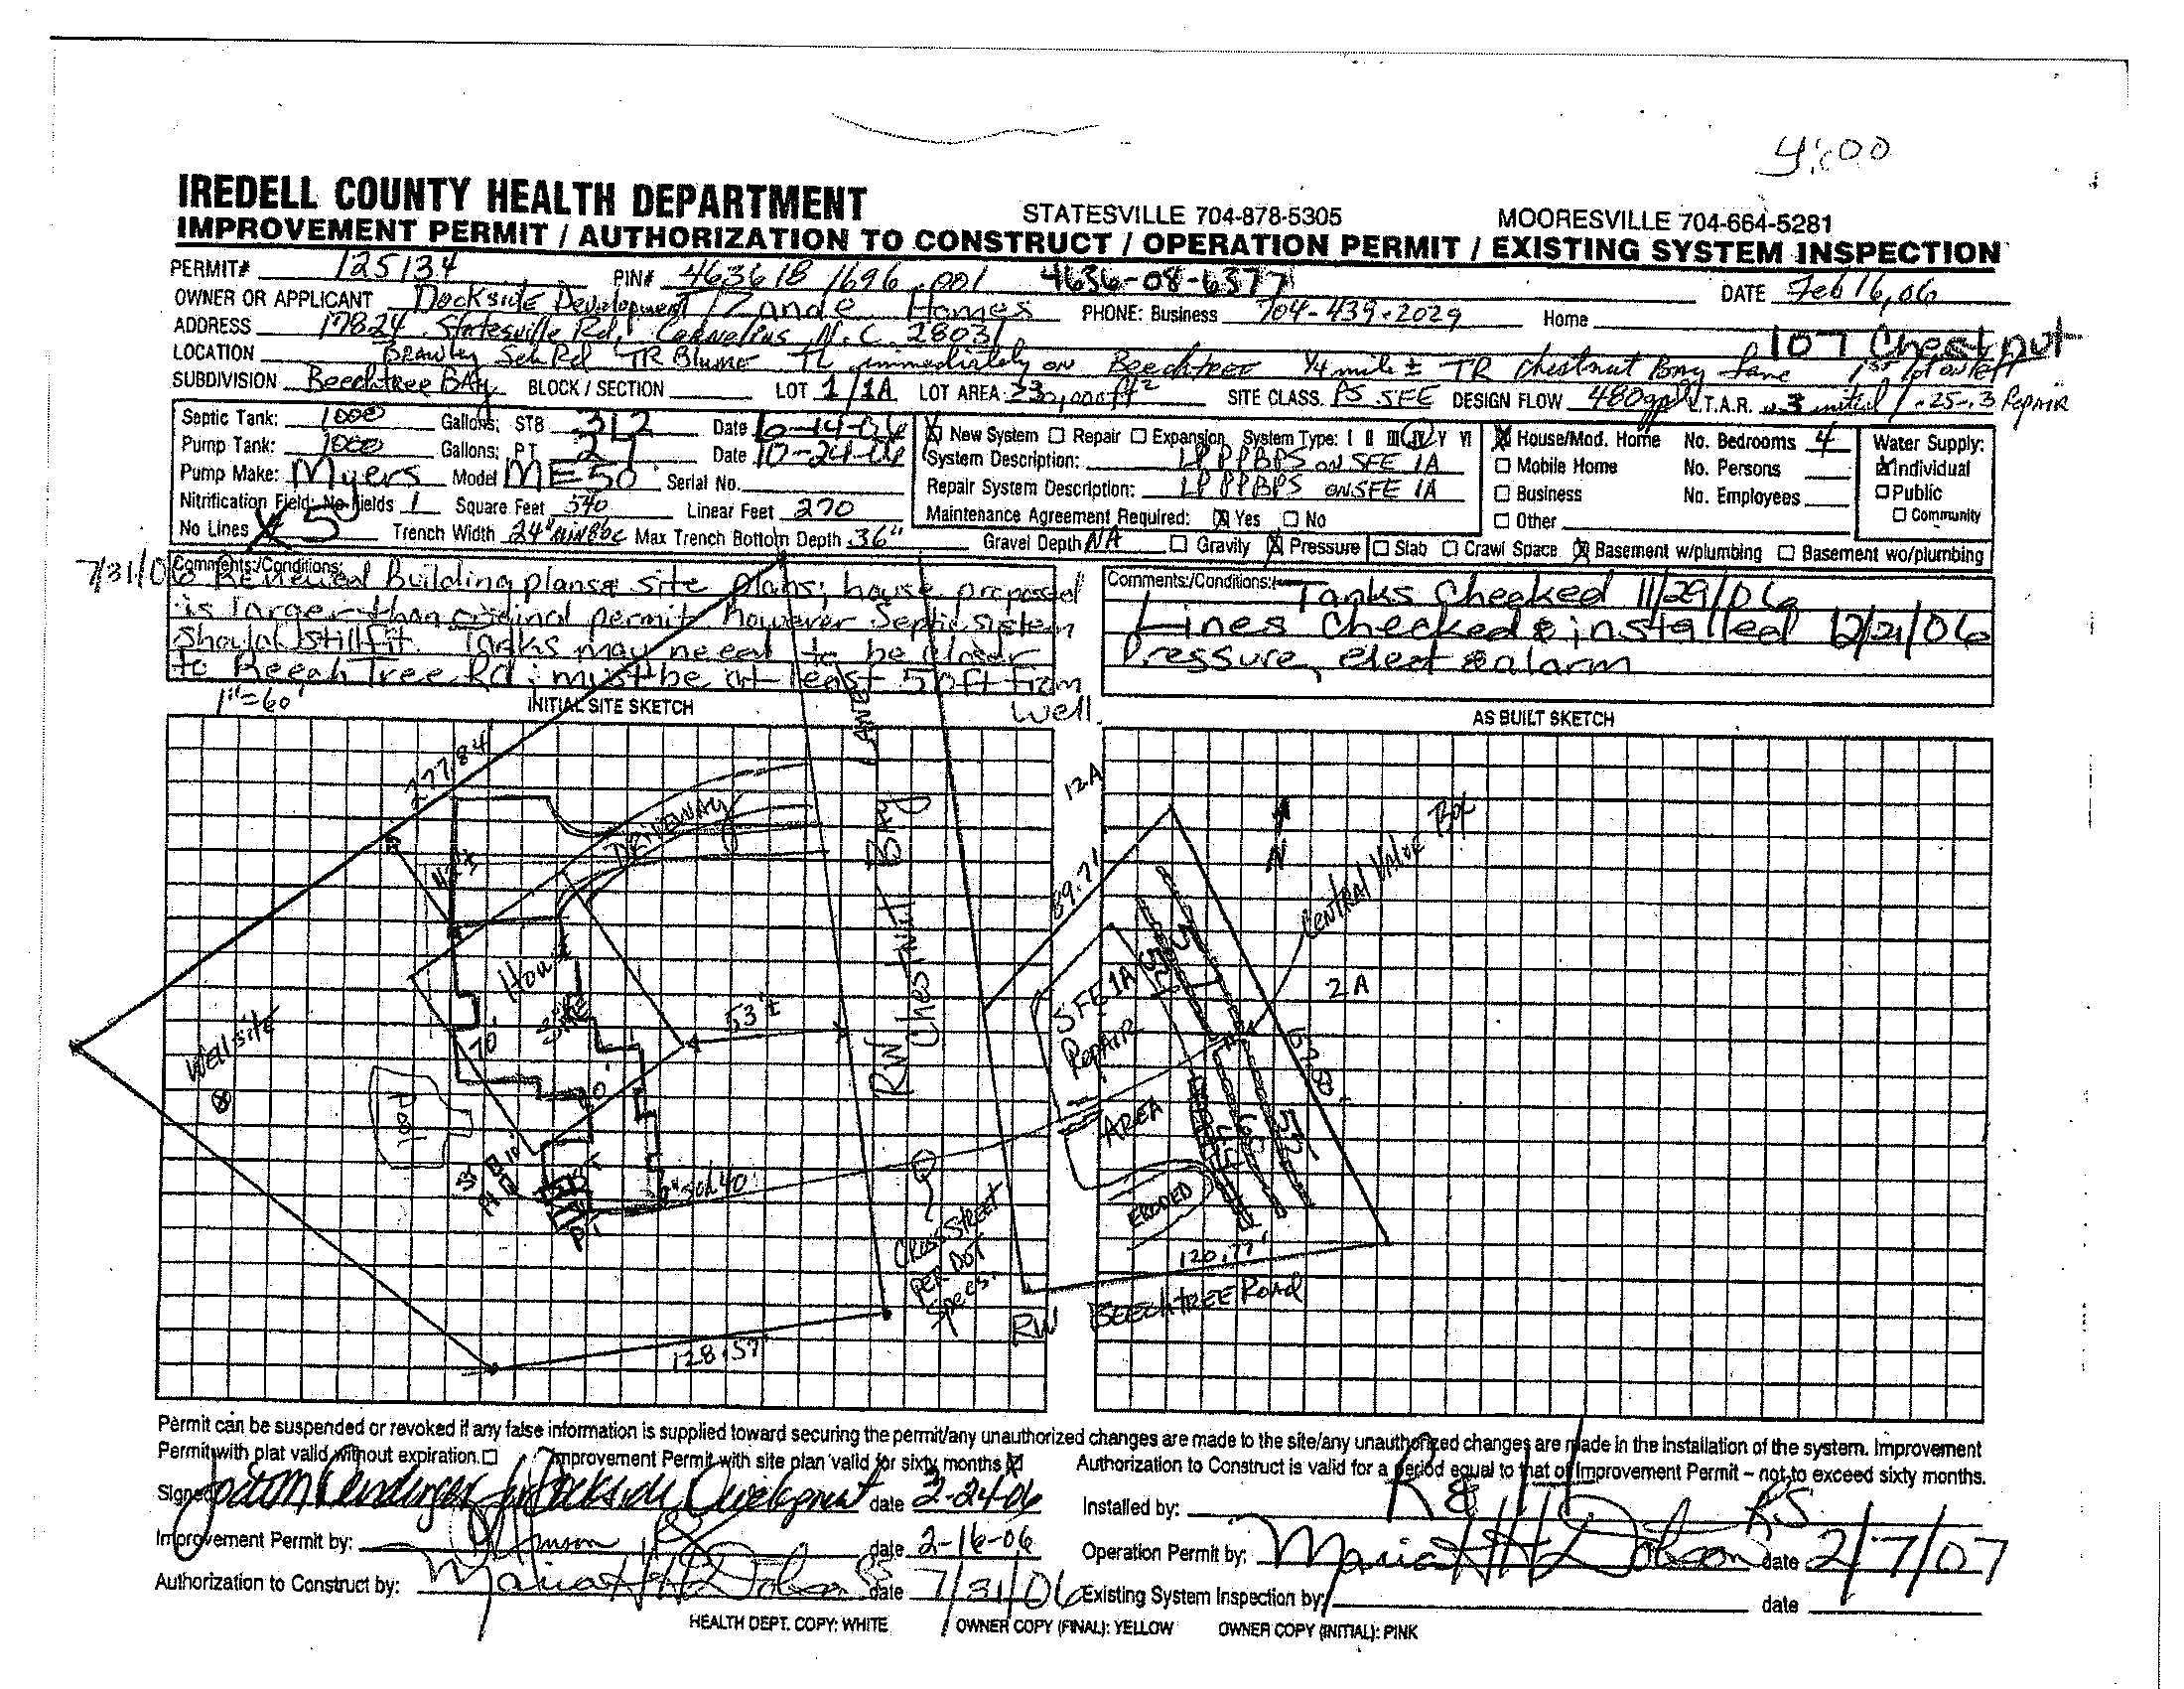 4:00
IREDELL COUNTY HEALTH DEPARTMENT STATESVILLE 704-878-5305 MOORESVILLE 704-664-5281
IMPROVEMENT PERMIT / AUTHORIZATION TO CONSTRUCT / OPERATION PERMIT / EXISTING SYSTEM INSPECTION
PERMIT# 125134 PIN# 463618 1696.001 4636-08-6377 DATE Feb 16, 06
OWNER OR APPLICANT Dockside Development / Zande Homes PHONE: Business 704-439-2029 Home
ADDRESS 17824 Statesville Rd, Cornelius, N.C. 28031 107 Chestnut
LOCATION Brawley Sch Rd TR Blume TL immediately on Beechtree 1/4 mile ± TR Chestnut Bay Lane 1st lot on left
SUBDIVISION Beechtree BAy BLOCK / SECTION LOT 1/1A LOT AREA SITE CLASS. PS SEE DESIGN FLOW 480gpd L.T.A.R. .3 initial / .25-.3 REPAIR
Septic Tank: 1000 Gallons; STB 312 Date 6-14-06
Pump Tank: 1000 Gallons; PT 27 Date 10-24-06
Pump Make: Myers Model ME50 Serial No.
Nitrification Field: No Fields 1 Square Feet 540 Linear Feet 270
No Lines 5 Trench Width 24" Max Trench Bottom Depth 36" Gravel Depth NA
New System Repair Expansion System Type: I II III IV V VI
System Description: LPPPBPS on SFE 1A
Repair System Description: LPPPBPS on SFE 1A
Maintenance Agreement Required: Yes No
Gravity Pressure Slab Crawl Space Basement w/plumbing Basement wo/plumbing
House/Mod. Home No. Bedrooms 4
Mobile Home No. Persons
Business No. Employees
Other
Water Supply:
Individual
Public
Community
Comments:/Conditions:
7/31/06 Reviewed building plans & site plans; house proposed
is larger than original permit however septic system
should still fit. Tanks may need to be closer
to Beech Tree Rd; must be at least 50 ft from
well.
Comments:/Conditions: Tanks Checked 11/29/06
Lines checked & installed 12/21/06
Pressure, elect & alarm
1"=60'
INITIAL SITE SKETCH
AS BUILT SKETCH
277.84'
DRIVEWAY
House
Site
70'
53'±
Well site
Pool
10'
ST
PT
2" Sch 40
128.57'
RW Chestnut BAY LANE
CROSS STREET
PER DOT
Specs.
RW
BEECHTREE Road
12A
89.71'
N
Central Valve Box
2A
SFE 1A
Repair
AREA
ERODED
120.77'
Permit can be suspended or revoked if any false information is supplied toward securing the permit/any unauthorized changes are made to the site/any unauthorized changes are made in the installation of the system. Improvement
Permit with plat valid without expiration. Improvement Permit with site plan valid for sixty months Authorization to Construct is valid for a period equal to that of Improvement Permit – not to exceed sixty months.
Signed Dockside Development date 2-24-06
Installed by: R & H
Improvement Permit by: date 2-16-06
Operation Permit by: Maria H H Dobson RS date 2/7/07
Authorization to Construct by: Maria H H Dobson RS date 7/31/06
Existing System Inspection by: date
HEALTH DEPT. COPY: WHITE OWNER COPY (FINAL): YELLOW OWNER COPY (INITIAL): PINK